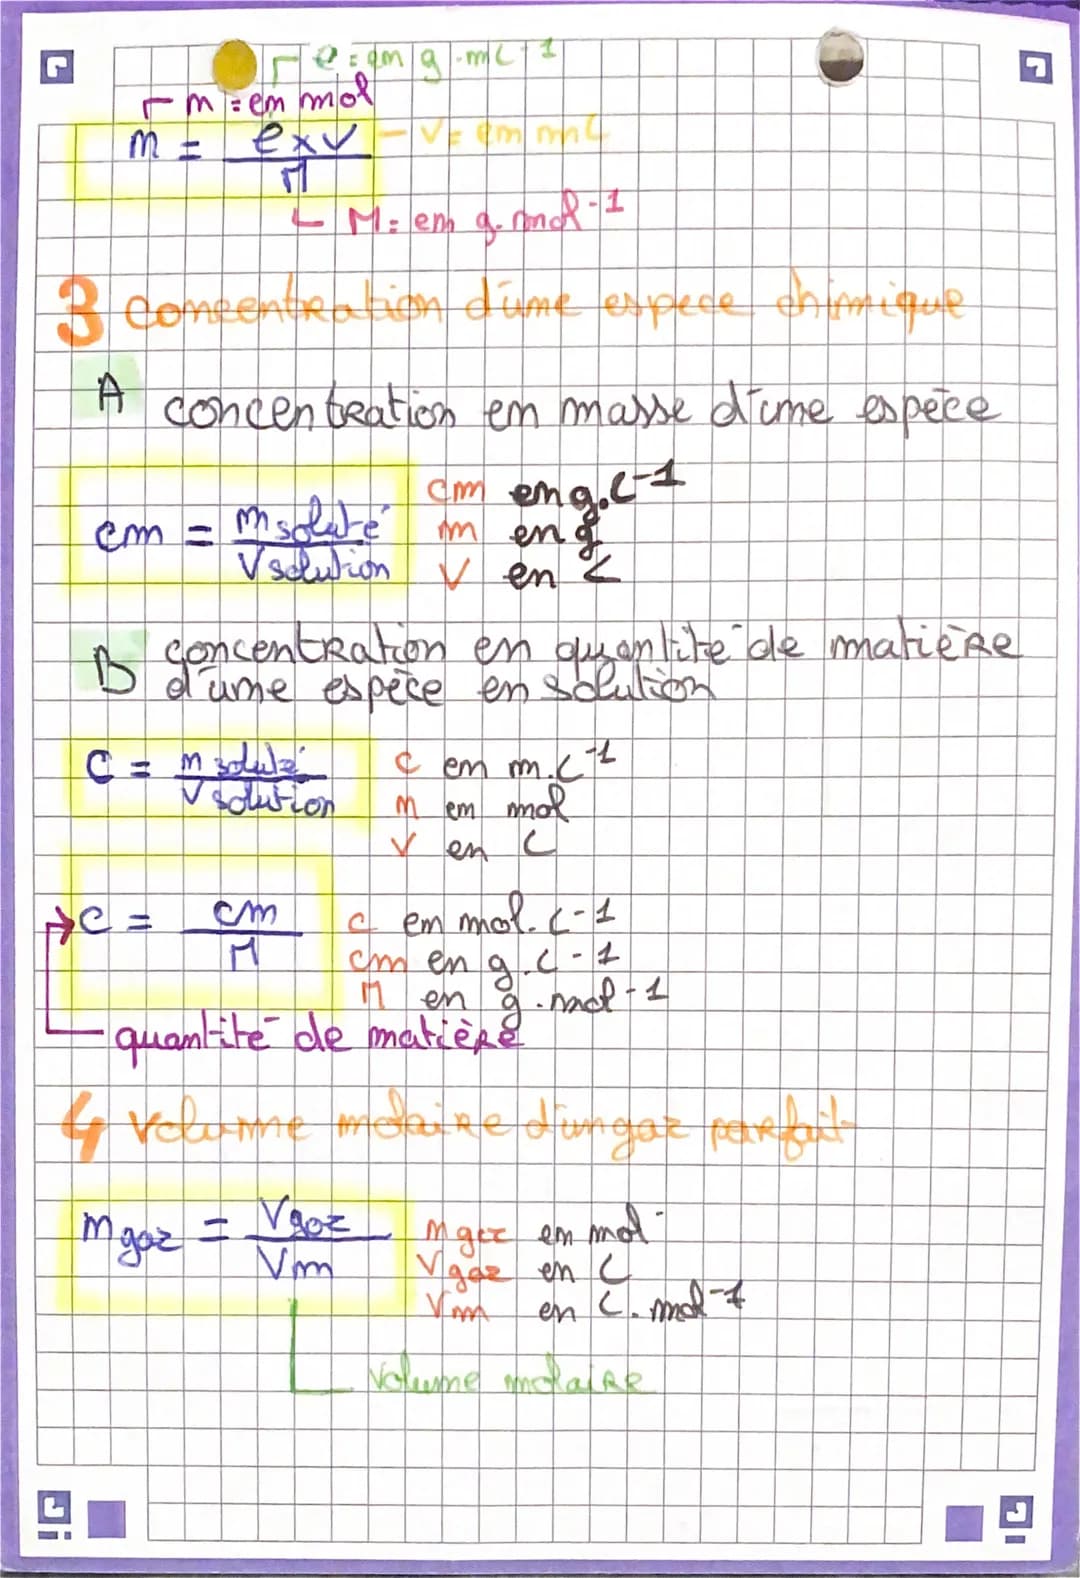 ρ = en g.mL-1
n = en mol
n = ρ x V / M
V = en mL
M = en g.mol-1
3 concentration d'une espece chimique
A concentration en masse d'une espèce
cm = m soluté / V solution
cm en g.L-1
m en g
V en L
B concentration en quantité de matière
d'une espèce en solution
C = n soluté / V solution
C en m.L-1
n en mol
V en L
C = cm / M
C en mol.L-1
cm en g.L-1
M en g.mol-1
quantité de matière
4 Volume molaire d'un gaz parfait
n gaz = V gaz / Vm
n gaz en mol
V gaz en L
Vm en L.mol-1
Volume molaire